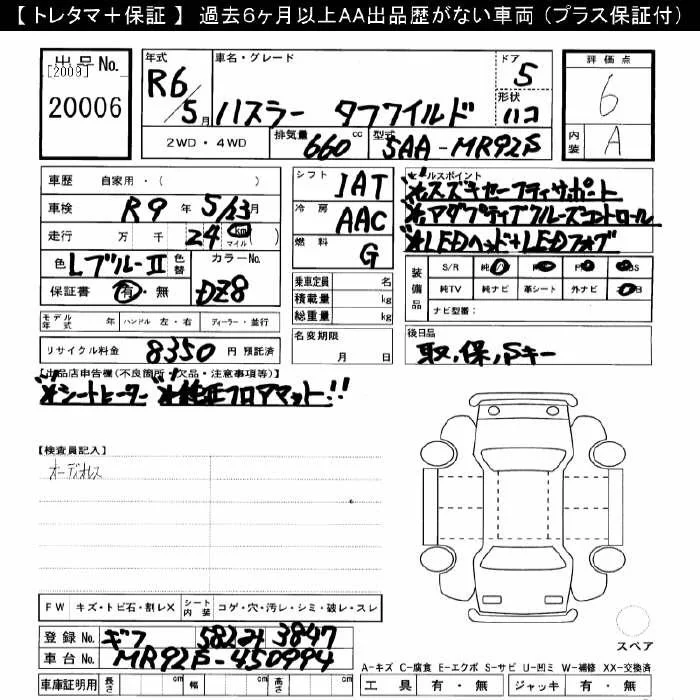 【 トレタマ＋保証 】 過去6ヶ月以上AA出品歴がない車両（プラス保証付）
出品No.
[2009]
20006
年式
R6/5月
車名・グレード
ハスラー タフワイルド
ドア
5
形状
ハコ
評価点
6
内装
A
2WD・4WD
排気量
660cc
型式
5AA-MR92S
車歴 自家用・( )
車検 R9年 5/23月
走行 万 千 24 km マイル ( )
色 Lブルー II 色替 カラーNo.
保証書 有・無 DZ8
シフト IAT
冷房 AAC
燃料 G
乗車定員 名
積載量 kg
総重量 kg
セールスポイント
※スズキセーフティサポート
※アダプティブクルーズコントロール
※LEDヘッド+LEDフォグ
装備品
S/R
純TV 純ナビ 革シート 外ナビ
ナビ型番：
モデル年式 年 ハンドル 左・右 ディーラー・並行
リサイクル料金 8350 円 預託済
名変期限
月 日
後日品
取,保,Sキー
【出品店申告欄(不良箇所・欠品・注意事項等)】
※シートヒーター ※純正フロアマット!!
【検査員記入】
オーディオレス
FW キズ・トビ石・割レX シート内装 コゲ・穴・汚レ・シミ・破レ・スレ
登録No. ギフ 582 み 3847
車台No. MR92S-450994
車庫証明用 長さ cm 幅 cm 高さ cm
スペア
A-キズ C-腐食 E-エクボ S-サビ U-凹ミ W-補修 XX-交換済
工具 有・無 ジャッキ 有・無